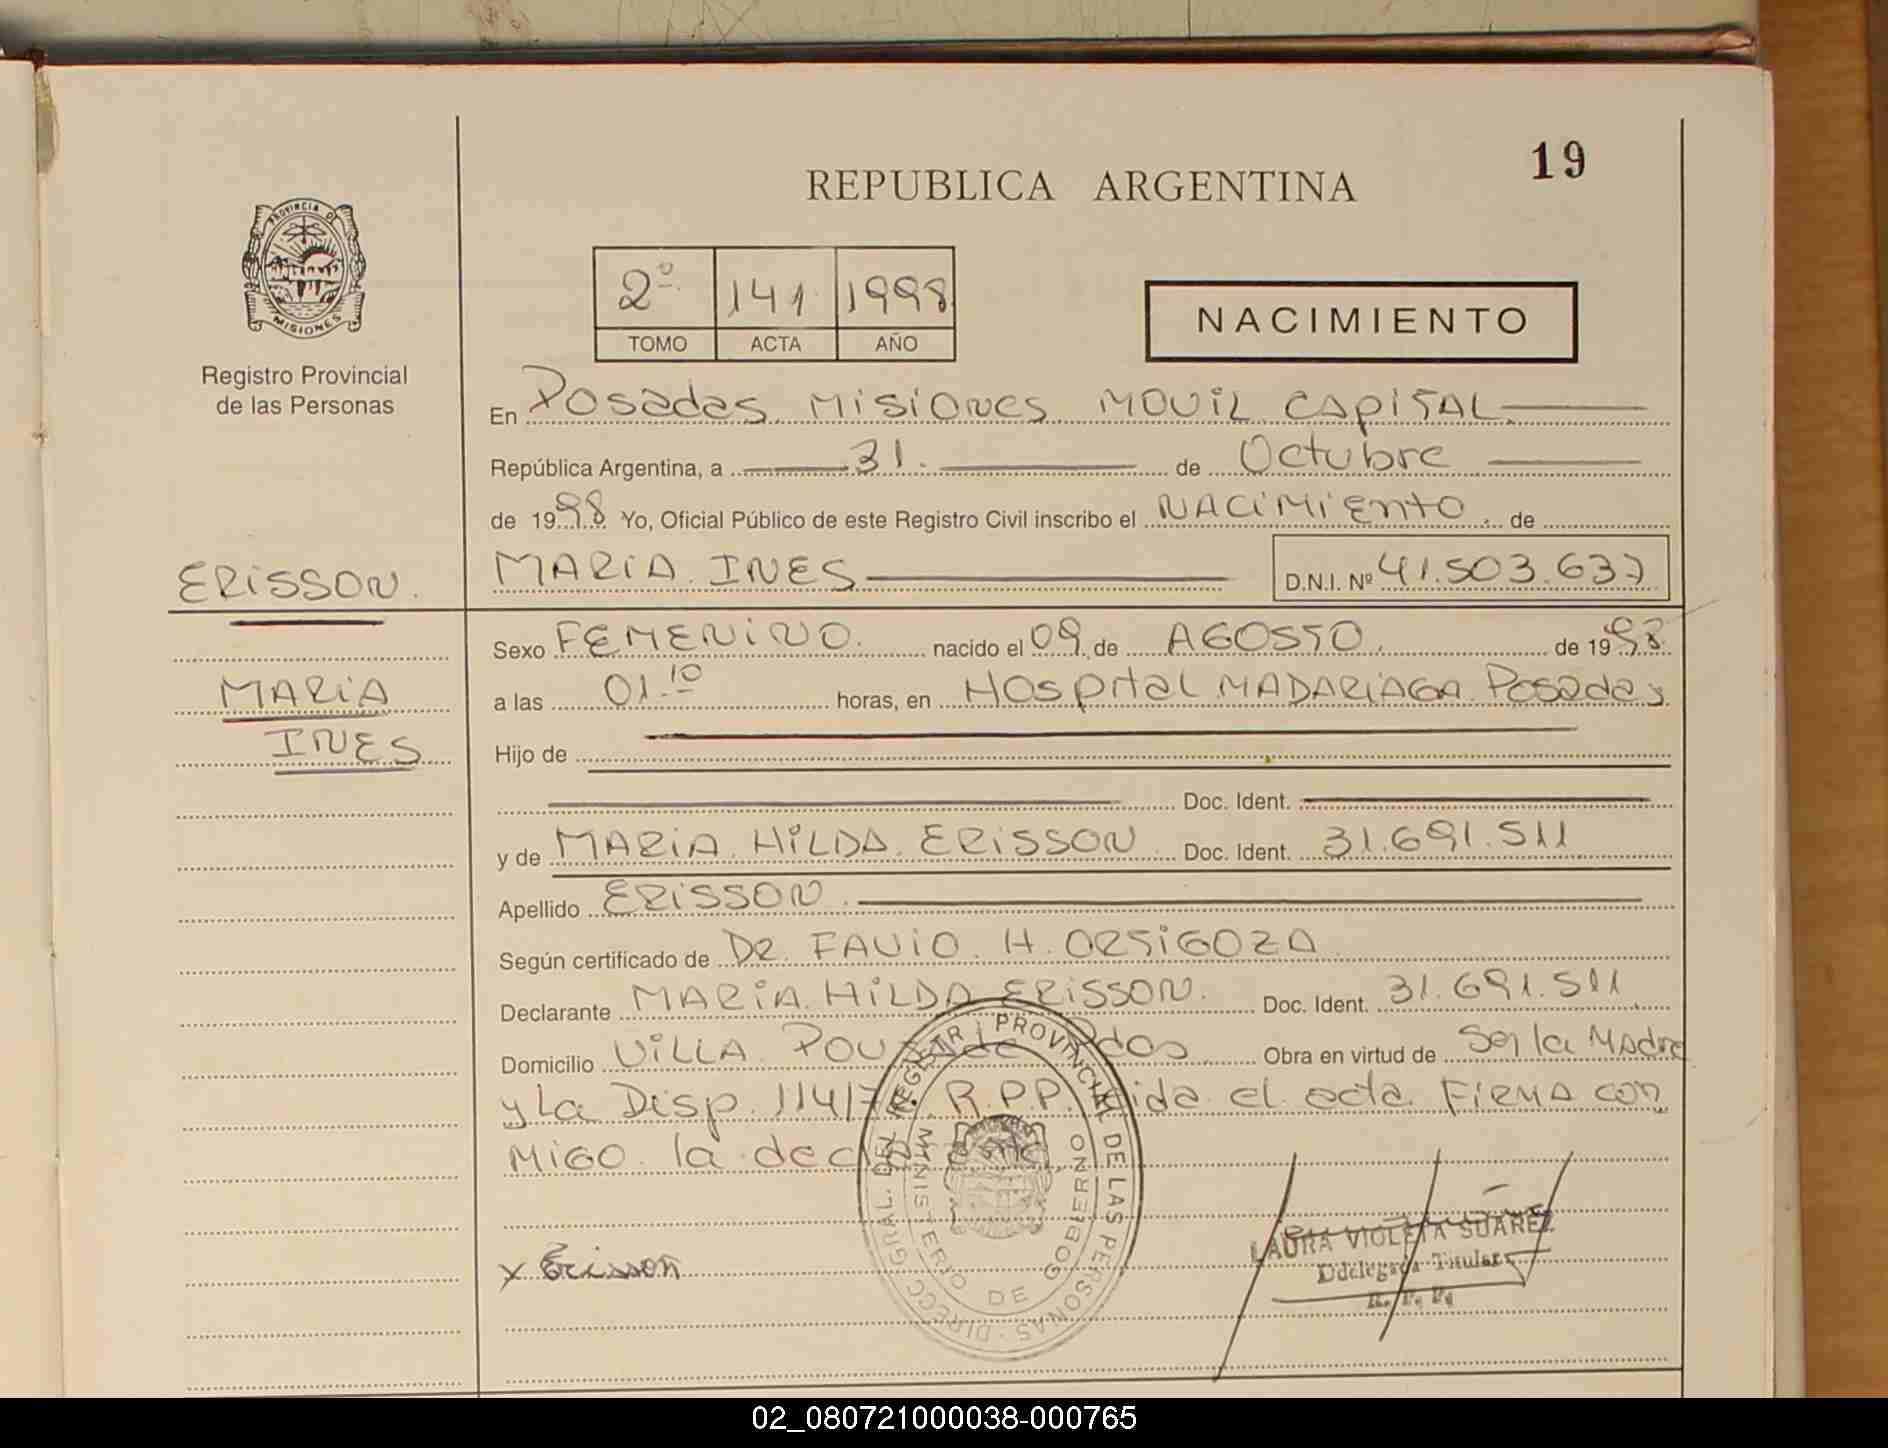 19
REPUBLICA ARGENTINA
PROVINCIA DE
MISIONES
Registro Provincial
de las Personas
2º 141 1998
TOMO ACTA AÑO
NACIMIENTO
En Posadas, Misiones Movil Capital
República Argentina, a 31 de Octubre
de 1998 Yo, Oficial Público de este Registro Civil inscribo el NACIMIENTO de
ERISSON
MARIA INES D.N.I. Nº 41.503.637
Sexo FEMENINO nacido el 09 de AGOSTO de 1998
MARIA
a las 01.10 horas, en Hospital MADARIAGA Posadas
INES
Hijo de
Doc. Ident.
y de MARIA HILDA ERISSON Doc. Ident. 31.691.511
Apellido ERISSON
Según certificado de DR. FAVIO H. ORTIGOZA
Declarante MARIA HILDA ERISSON Doc. Ident. 31.691.511
Domicilio VILLA Pdas Obra en virtud de Ser la Madre
y La Disp. 114/7 R.P.P. Leida el acta FIRMA con
MIGO la declarante
DIRECC GRAL. DEL REGISTR PROVINCIAL DE LAS PERSONAS
MINISTERIO DE GOBIERNO
x Erisson
LAURA VIOLETA SUAREZ
Ddelegada Titular
R. P. P.
02_080721000038-000765